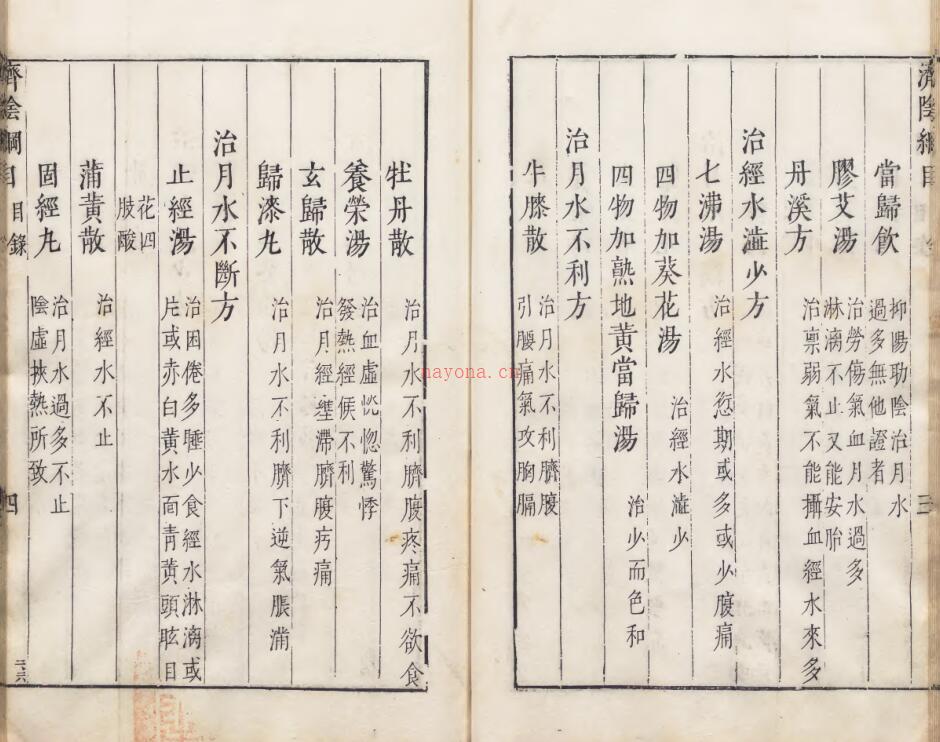 濟陰綱目
三
當歸飲 抑陽助陰治月水
過多無他證者
膠艾湯 治勞傷氣血月水過多
淋漓不止又能安胎
丹溪方 治禀弱氣不能攝血經水來多
治經水澁少方
七沸湯 治經水愆期或多或少腹痛
四物加葵花湯 治經水澁少
四物加熟地黃當歸湯 治少而色和
治月水不利方
牛膝散 治月水不利臍腹
引腰痛氣攻胸膈
牡丹散 治月水不利臍腹疼痛不欲食
養榮湯 治血虛恍惚驚悸
發熱經候不利
玄歸散 治月經壅滯臍腹㽲痛
歸漆丸 治月水不利臍下逆氣脹滿
治月水不斷方
止經湯 治困倦多睡少食經水淋漓或
片或赤白黃水面青黃頭眩目
花四
肢酸
蒲黃散 治經水不止
固經丸 治月水過多不止
陰虛挾熱所致
濟陰綱目 目錄
四
nayona.cn